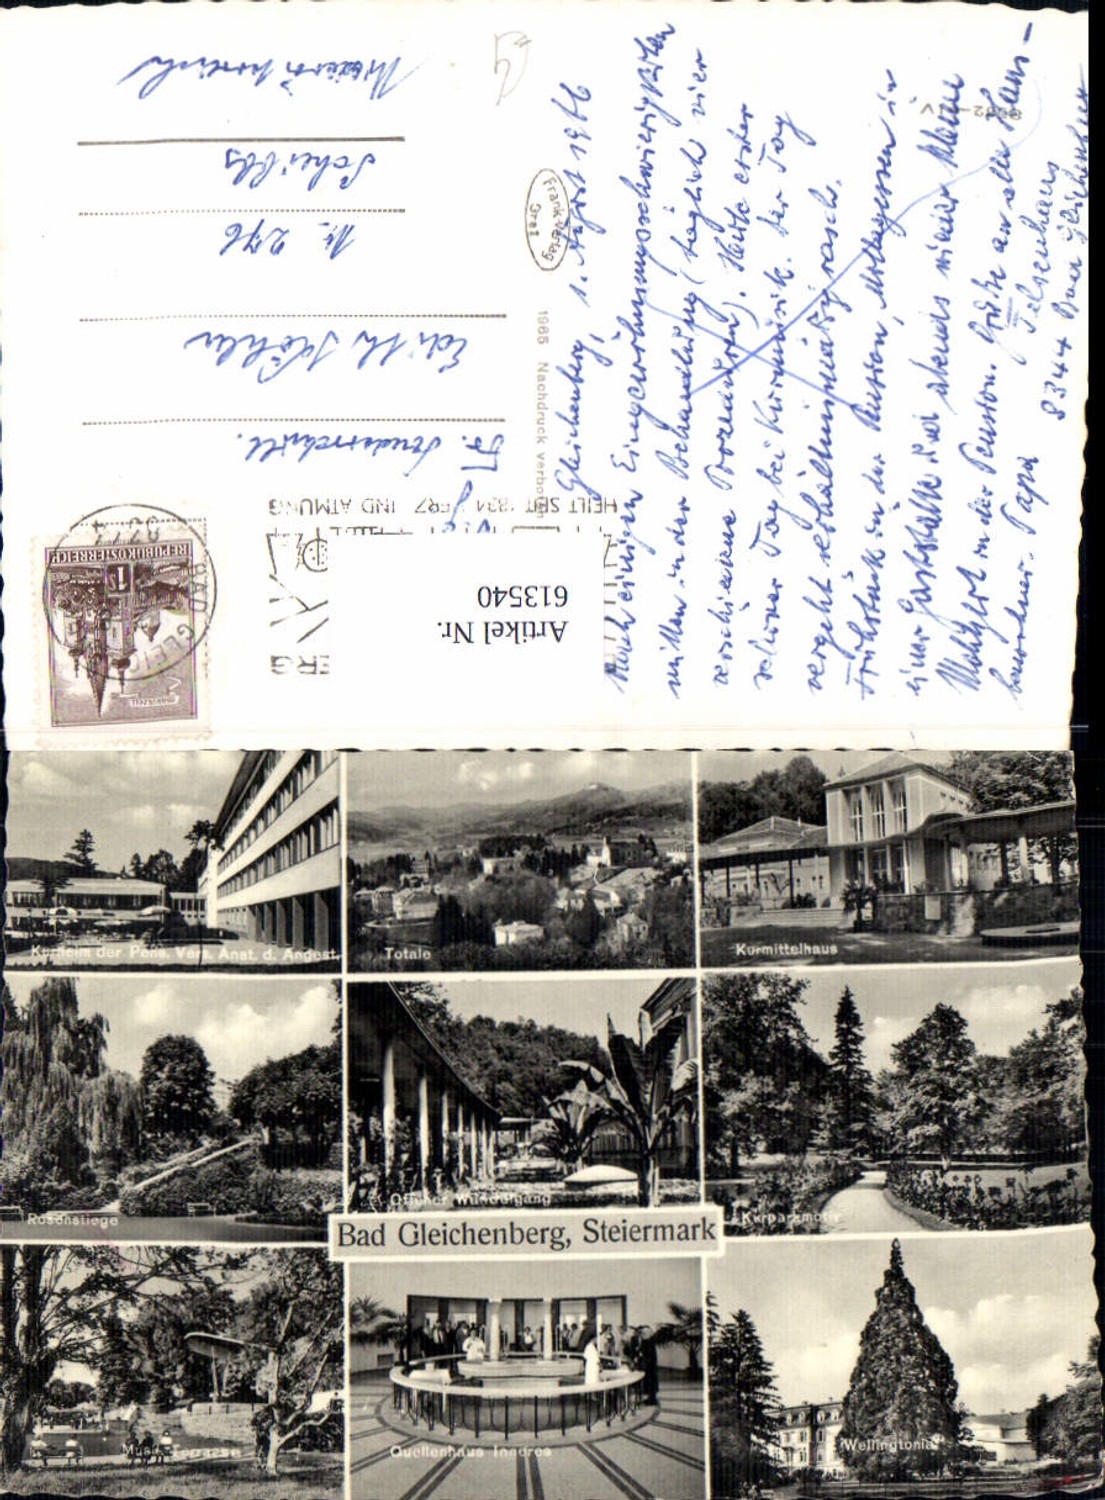 Gleichenberg, 1. August 1966
Nach einigen Eingewöhnungsschwierigkeiten
mitten in der Behandlung (täglich vier
verschiedene Prozeduren). Heute erster
schöner Tag bei Kurmusik. Der Tag
vergeht verhältnismäßig rasch.
Frühstück in der Pension, Mittagessen in
einer Gaststätte und abends wieder kleine
in der Pension. Grüße an alle Haus-
bewohner. Papa
8344 Bad Gleichenberg
Edith Köhler
Nr. 276
Scheibbs
Niederösterreich
Frank-Verlag
Graz
1965 Nachdruck verboten
HEILT SEIT 1834 HERZ UND ATMUNG
REPUBLIK ÖSTERREICH
1 S
MARIAZELL
Artikel Nr.
613540
Kurheim der Pens. Vers. Anst. d. Angest.
Totale
Kurmittelhaus
Rosenstiege
Offener Wandelgang
Kurparkmotiv
Bad Gleichenberg, Steiermark
Musik-Terrasse
Quellenhaus Inneres
Wellingtonia